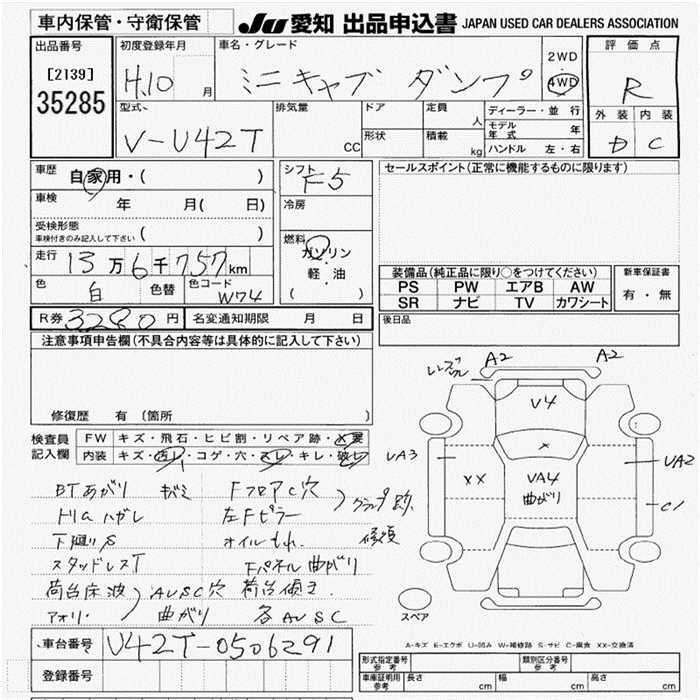 車内保管・守衛保管
JU 愛知 出品申込書 JAPAN USED CAR DEALERS ASSOCIATION
出品番号
[2139]
35285
初度登録年月
H.10 月
車名・グレード
ミニキャブ ダンプ
2WD
4WD
評価点
R
外装 内装
D C
型式
V-U42T
排気量
CC
ドア
形状
定員
人
積載
kg
ディーラー・並行
モデル年式 年
ハンドル 左・右
車歴
自家用・( )
車検 年 月( 日)
受検形態
車検付きのみ記入して下さい ( )
走行 13万6千757km
色 白 色替 色コード W74
シフト
F5
冷房
燃料
ガソリン
軽・油
( )
セールスポイント(正常に機能するものに限ります)
装備品(純正品に限り○をつけてください)
PS PW エアB AW
SR ナビ TV カワシート
新車保証書
有・無
R券 3280円 名変通知期限 月 日
後日品
注意事項申告欄(不具合内容等は具体的に記入して下さい)
修復歴 有(箇所
検査員
記入欄
FW キズ・飛石・ヒビ割・リペア跡・X要
内装 キズ・汚レ・コゲ・穴・スレ・キレ・破レ
BTあがり キバミ Fフロアc穴
ドリムハガレ 左Fピラー
クランプ跡
修復
下廻りS オイルもれ
スタッドレスT Fパネル曲がり
荷台床波 AUSC穴 荷台傾き
アオリ・ 曲がり 各AUSC
A2 A2
V4
UA3
×
XX
UA4
曲がり
UA2
C1
スペア
A-キズ E-エクボ U-凹み W-補修跡 S-サビ C-腐食 XX-交換済
車台番号 U42T-0506291
登録番号
形式指定番号
参考
類別区分番号
参考
車庫証明用
参考
長さ cm 幅 cm 高さ cm